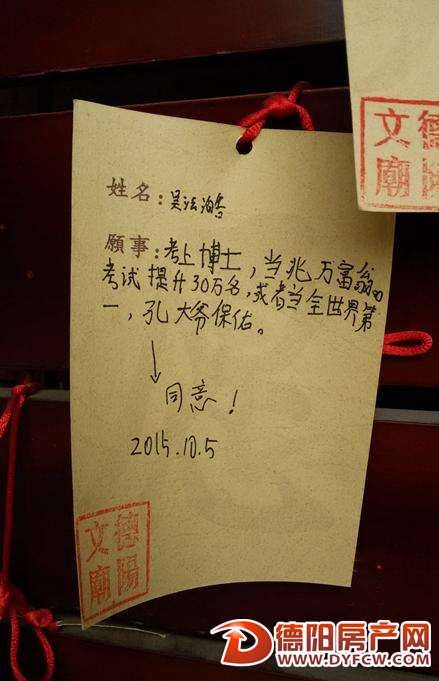 姓名：吴法
願事：考上博士，当兆万富翁。
考试提升30万名，或者当全世界第
一，孔大爷保佑。
同意！
2015.10.5
德陽
文廟
德陽
文廟
德阳房产网
WWW.DYFCW.COM